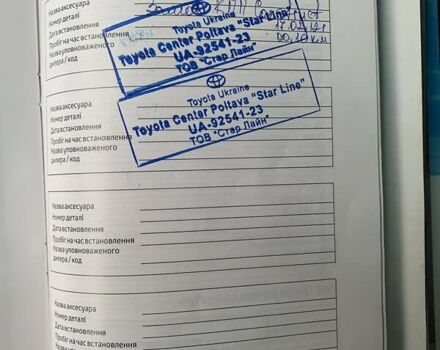 Назва аксесуара
Номер деталі
Дата встановлення
Пробіг на час встановлення
Назва уповноваженого
дилера / код
Toyota Ukraine
Toyota Center Poltava "Star Line"
UA-92541-23
ТОВ "Стар Лайн"
Назва аксесуара
Номер деталі
Дата встановлення
Пробіг на час встановлення
Назва уповноваженого
дилера / код
Toyota Ukraine
Toyota Center Poltava "Star Line"
UA-92541-23
ТОВ "Стар Лайн"
Назва аксесуара
Номер деталі
Дата встановлення
Пробіг на час встановлення
Назва уповноваженого
дилера / код
Назва аксесуара
Номер деталі
Дата встановлення
Пробіг на час встановлення
Назва уповноваженого
дилера / код